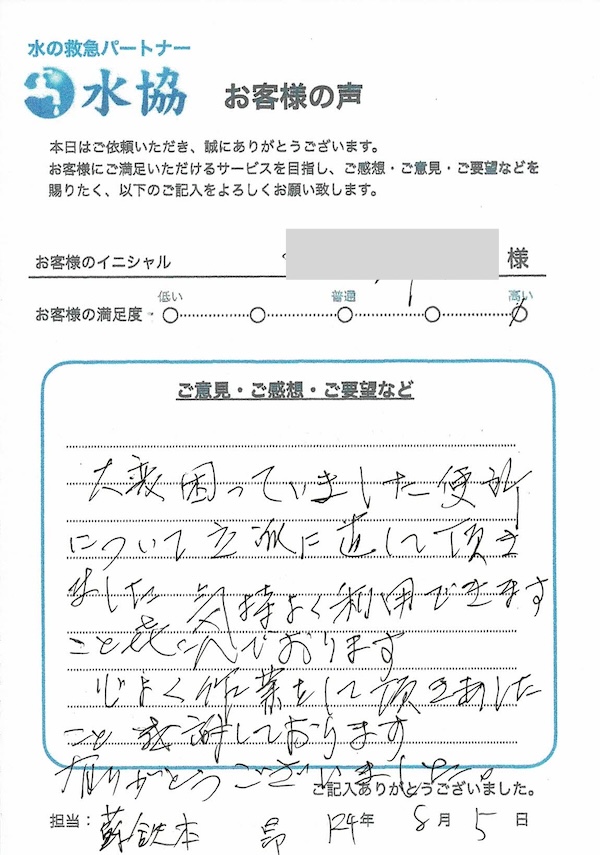 水の救急パートナー
水協 お客様の声
本日はご依頼いただき、誠にありがとうございます。
お客様にご満足いただけるサービスを目指し、ご感想・ご意見・ご要望などを
賜りたく、以下のご記入をよろしくお願い致します。
お客様のイニシャル 様
低い 普通 高い
お客様の満足度
ご意見・ご感想・ご要望など
大変困っていました便所
について立派に直して頂き
ました 気持よく利用できます
こと喜んでおります
よく作業をして頂きました
こと 感謝しております
ありがとうございました。
ご記入ありがとうございました。
担当： 昂 R4年 8月5日